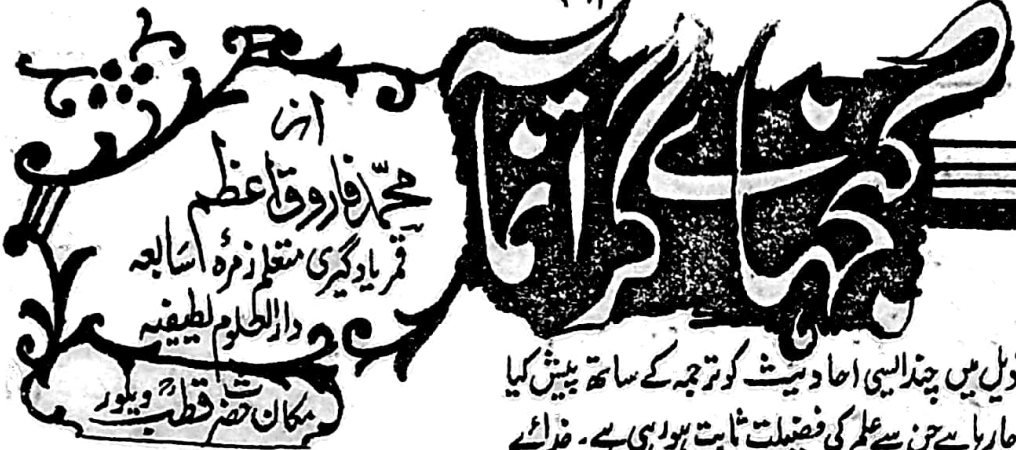 گہہائے گراں
از
محمد فاروق اعظم
قمر یادگیری متعلم زمرۂ سابعہ
دارالعلوم لطیفیہ
مکان حضرت قطبؒ ویلور
ذیل میں چند ایسی احادیث کو ترجمہ کے ساتھ پیش کیا
جارہا ہے جن سے علم کی فضیلت ثابت ہورہی ہے۔ خدائے